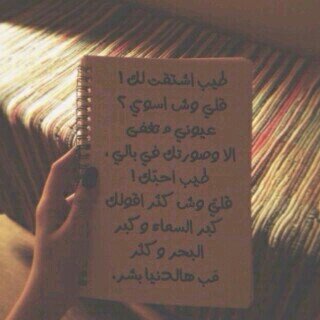 طيب اشتقت لك !
قلي وش اسوي ؟
عيوني م تغفى
الا وصورتك في بالي ،
طيب احبك !
قلي وش كثر اقولك
كبر السماء وكبر
البحر وكثر
مب هالدنيا بشر .